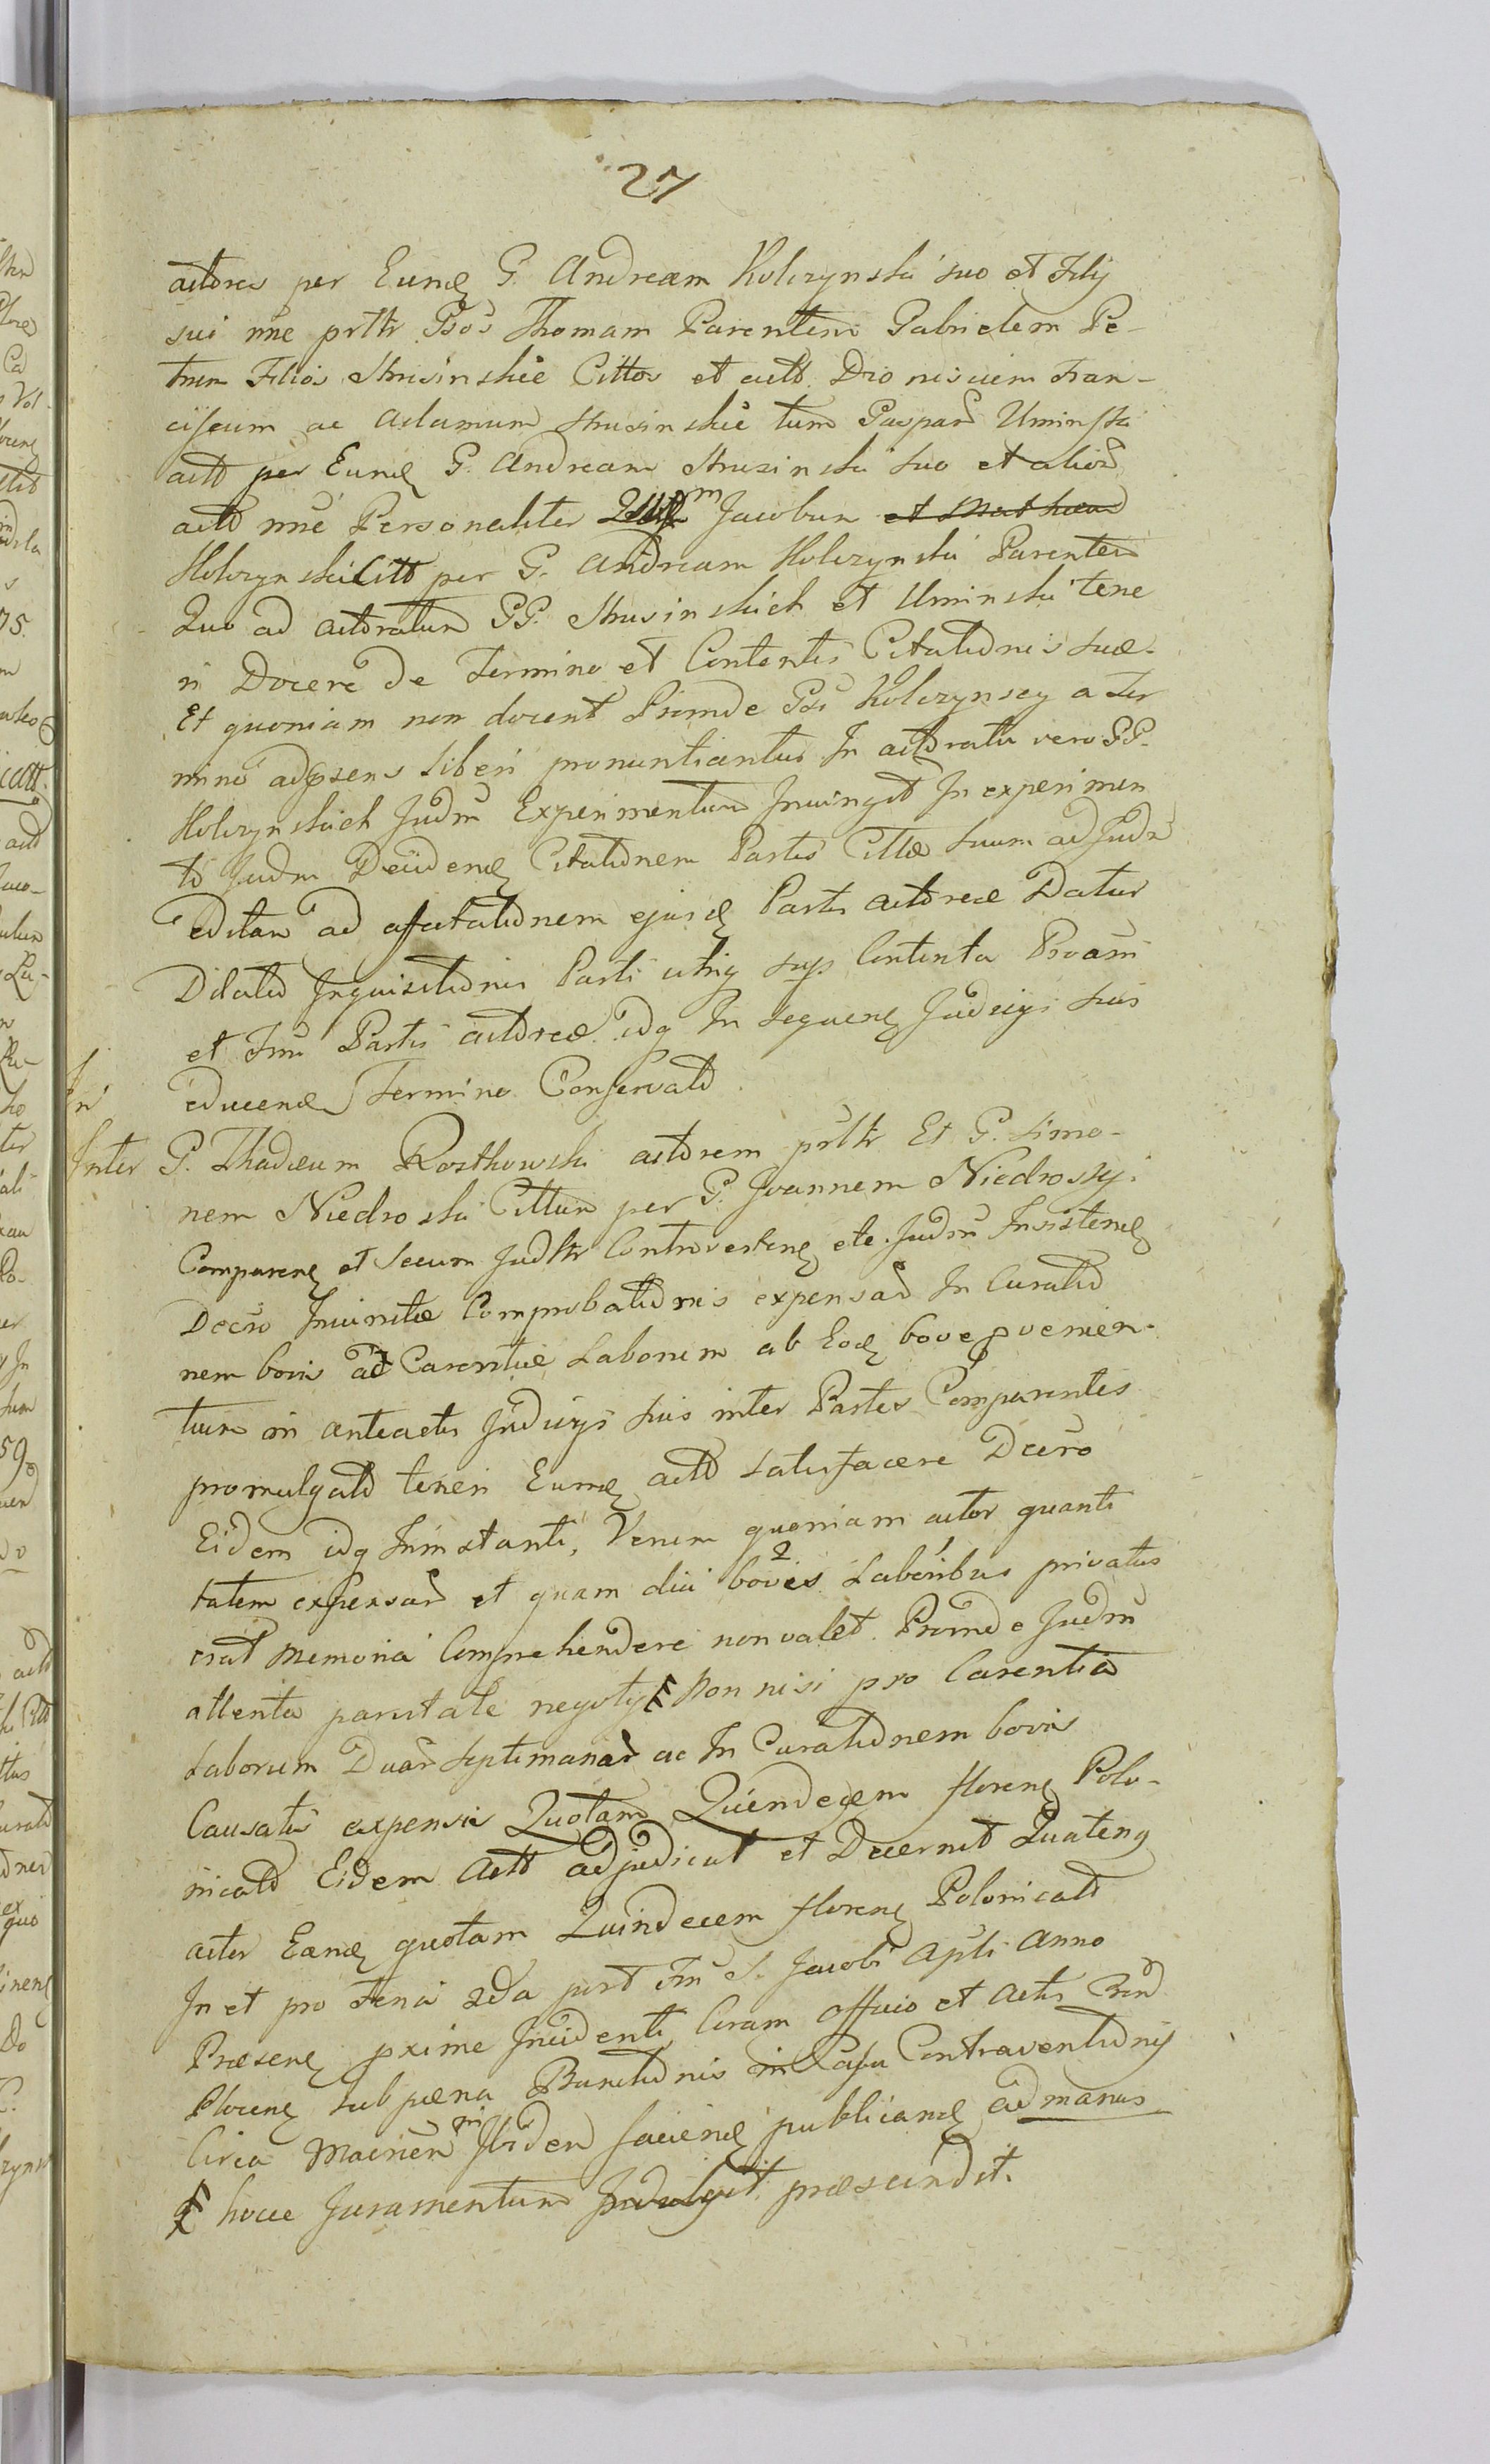 27
actores per Eund G. Andream Kolczynski suo et Filij
sui nne prltr Gsos Thomam Parentem Gabrielem Pe-
trum Filios Strusinskie Cittos et actt Dionisium Fran-
ciscum ac Adamum Strusinskie tum Gaspar Uminski
actt per Eund G. Andream Strusinski suo et alior
actt nne Personaliter Jacobum et Mathaeum
Kolczynski Citt per G. Andream Kolczynski Parentem
Quo ad actoratum GG. Strusinskich et Uminski tene
ri Docere de Termino et Contentis Citationis suae.
Et quoniam non docent Proinde Gsi Kolczynscy a Ter
mino adpraesens liberi pronuntiantur In actoratu vero GG.
Kolczynskich Judm Experimentum Invingit In experimen
to Judm Decidend Citationem Partis Cittae suum ad Judm
editam ad affectationem ejusd Partis actoreae Datur
Dilatio Inquisitionis Parti utriq sup Contenta Proami
et Frii Partis actoreae idq In sequend Judicijs suis
educend Termino Conservato
In
Inter G. Thadaeum Rostkowski actorem prltr Et G. Simo-
nem Niedroski Cittum per G. Joannem Niedrosky
Comparend et secum Judltr Controvertend etc. Judm Insistend
Decro Invinitae Comprobationis expensar In Curatio
nem bovis ac Carentiae Laborum ab Eod bove provenien-
tium in anteactis Judicijs suis inter Partes Comparentes
promulgato teneri Eund actt satisfacere Decro
Eidem idq Ininstanti, Verum quoniam actor quanti
tatem expensar et quam diu bovis 2 Laboribus privatus
erat memoria Comprehendere non valet. Proinde Judm
attenta parvitate negotij Non nisi pro Carentia
Laborum Duar septimanar ac In Curationem bovis
Causatis expensis Quotam Quindecem floren Polo-
nicalt Eidem Actt adjudicat et Decernit Quateng
actor Eand quotam Quindecem floren Polonicalt
In et pro Feria 2da post Fm S. Jacobi Apli Anno
Praesend pxime Incidenti Coram Officio et Actis
Plocens sub paena Bannitionis in Casu Contraventionis
Circa Ibidem faciend publicand ad manus
hocce Juramentum Indulget praescindit.